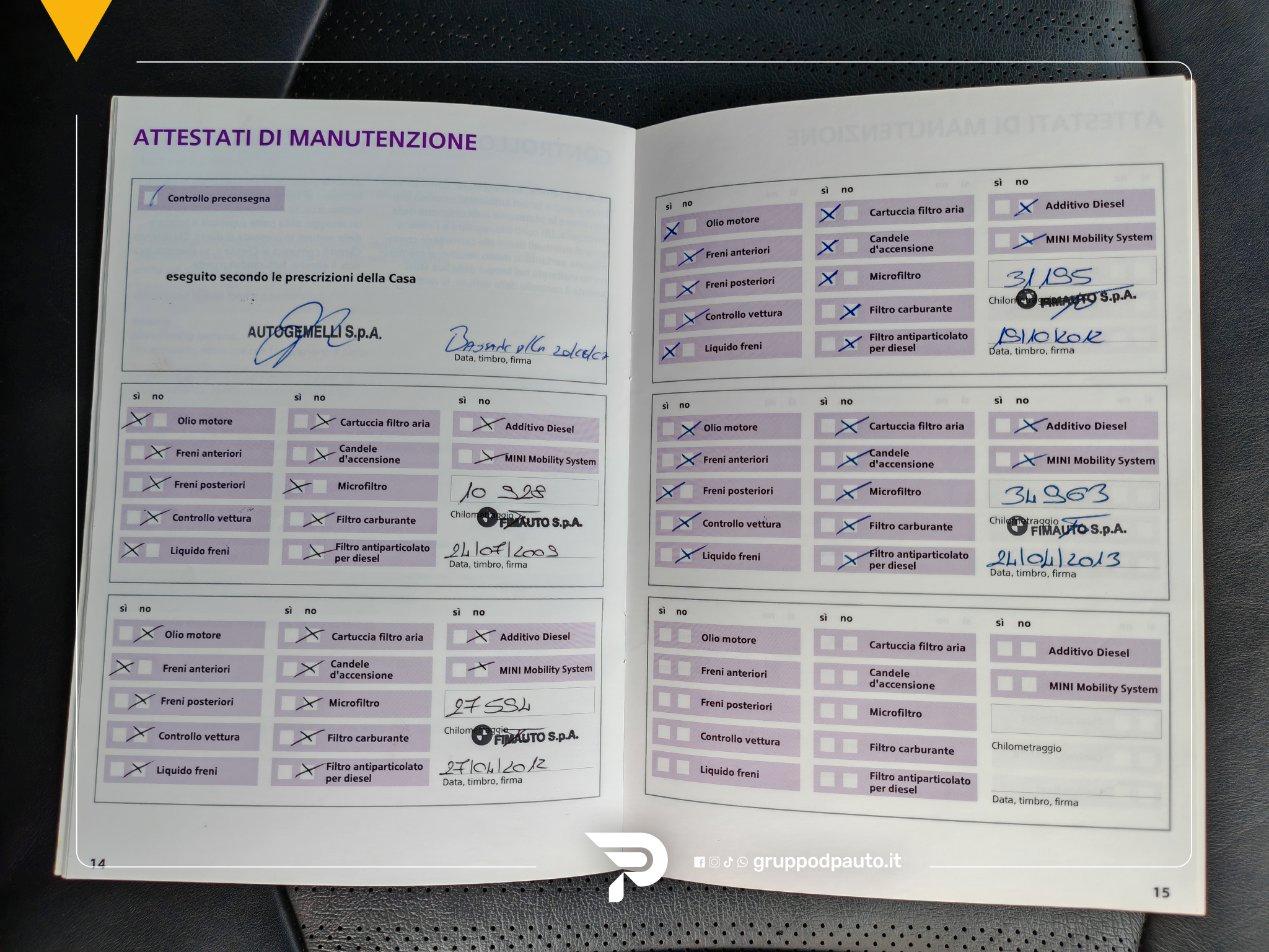 ATTESTATI DI MANUTENZIONE
Controllo preconsegna
eseguito secondo le prescrizioni della Casa
AUTOGEMELLI S.p.A.
Data, timbro, firma
sì no
sì no
sì no
Olio motore
Cartuccia filtro aria
Additivo Diesel
Freni anteriori
Candele
d'accensione
MINI Mobility System
Freni posteriori
Microfiltro
10 928
Chilometraggio
Controllo vettura
Filtro carburante
FIMAUTO S.p.A.
Liquido freni
Filtro antiparticolato
per diesel
24/07/2009
Data, timbro, firma
sì no
sì no
sì no
Olio motore
Cartuccia filtro aria
Additivo Diesel
Freni anteriori
Candele
d'accensione
MINI Mobility System
Freni posteriori
Microfiltro
27594
Chilometraggio
Controllo vettura
Filtro carburante
FIMAUTO S.p.A.
Liquido freni
Filtro antiparticolato
per diesel
27/04/2012
Data, timbro, firma
14
sì no
sì no
sì no
Olio motore
Cartuccia filtro aria
Additivo Diesel
Freni anteriori
Candele
d'accensione
MINI Mobility System
Freni posteriori
Microfiltro
31195
Chilometraggio
Controllo vettura
Filtro carburante
FIMAUTO S.p.A.
Liquido freni
Filtro antiparticolato
per diesel
19/10/2012
Data, timbro, firma
sì no
sì no
sì no
Olio motore
Cartuccia filtro aria
Additivo Diesel
Freni anteriori
Candele
d'accensione
MINI Mobility System
Freni posteriori
Microfiltro
34963
Chilometraggio
Controllo vettura
Filtro carburante
FIMAUTO S.p.A.
Liquido freni
Filtro antiparticolato
per diesel
24/04/2013
Data, timbro, firma
sì no
sì no
sì no
Olio motore
Cartuccia filtro aria
Additivo Diesel
Freni anteriori
Candele
d'accensione
MINI Mobility System
Freni posteriori
Microfiltro
Chilometraggio
Controllo vettura
Filtro carburante
Liquido freni
Filtro antiparticolato
per diesel
Data, timbro, firma
15
gruppodpauto.it